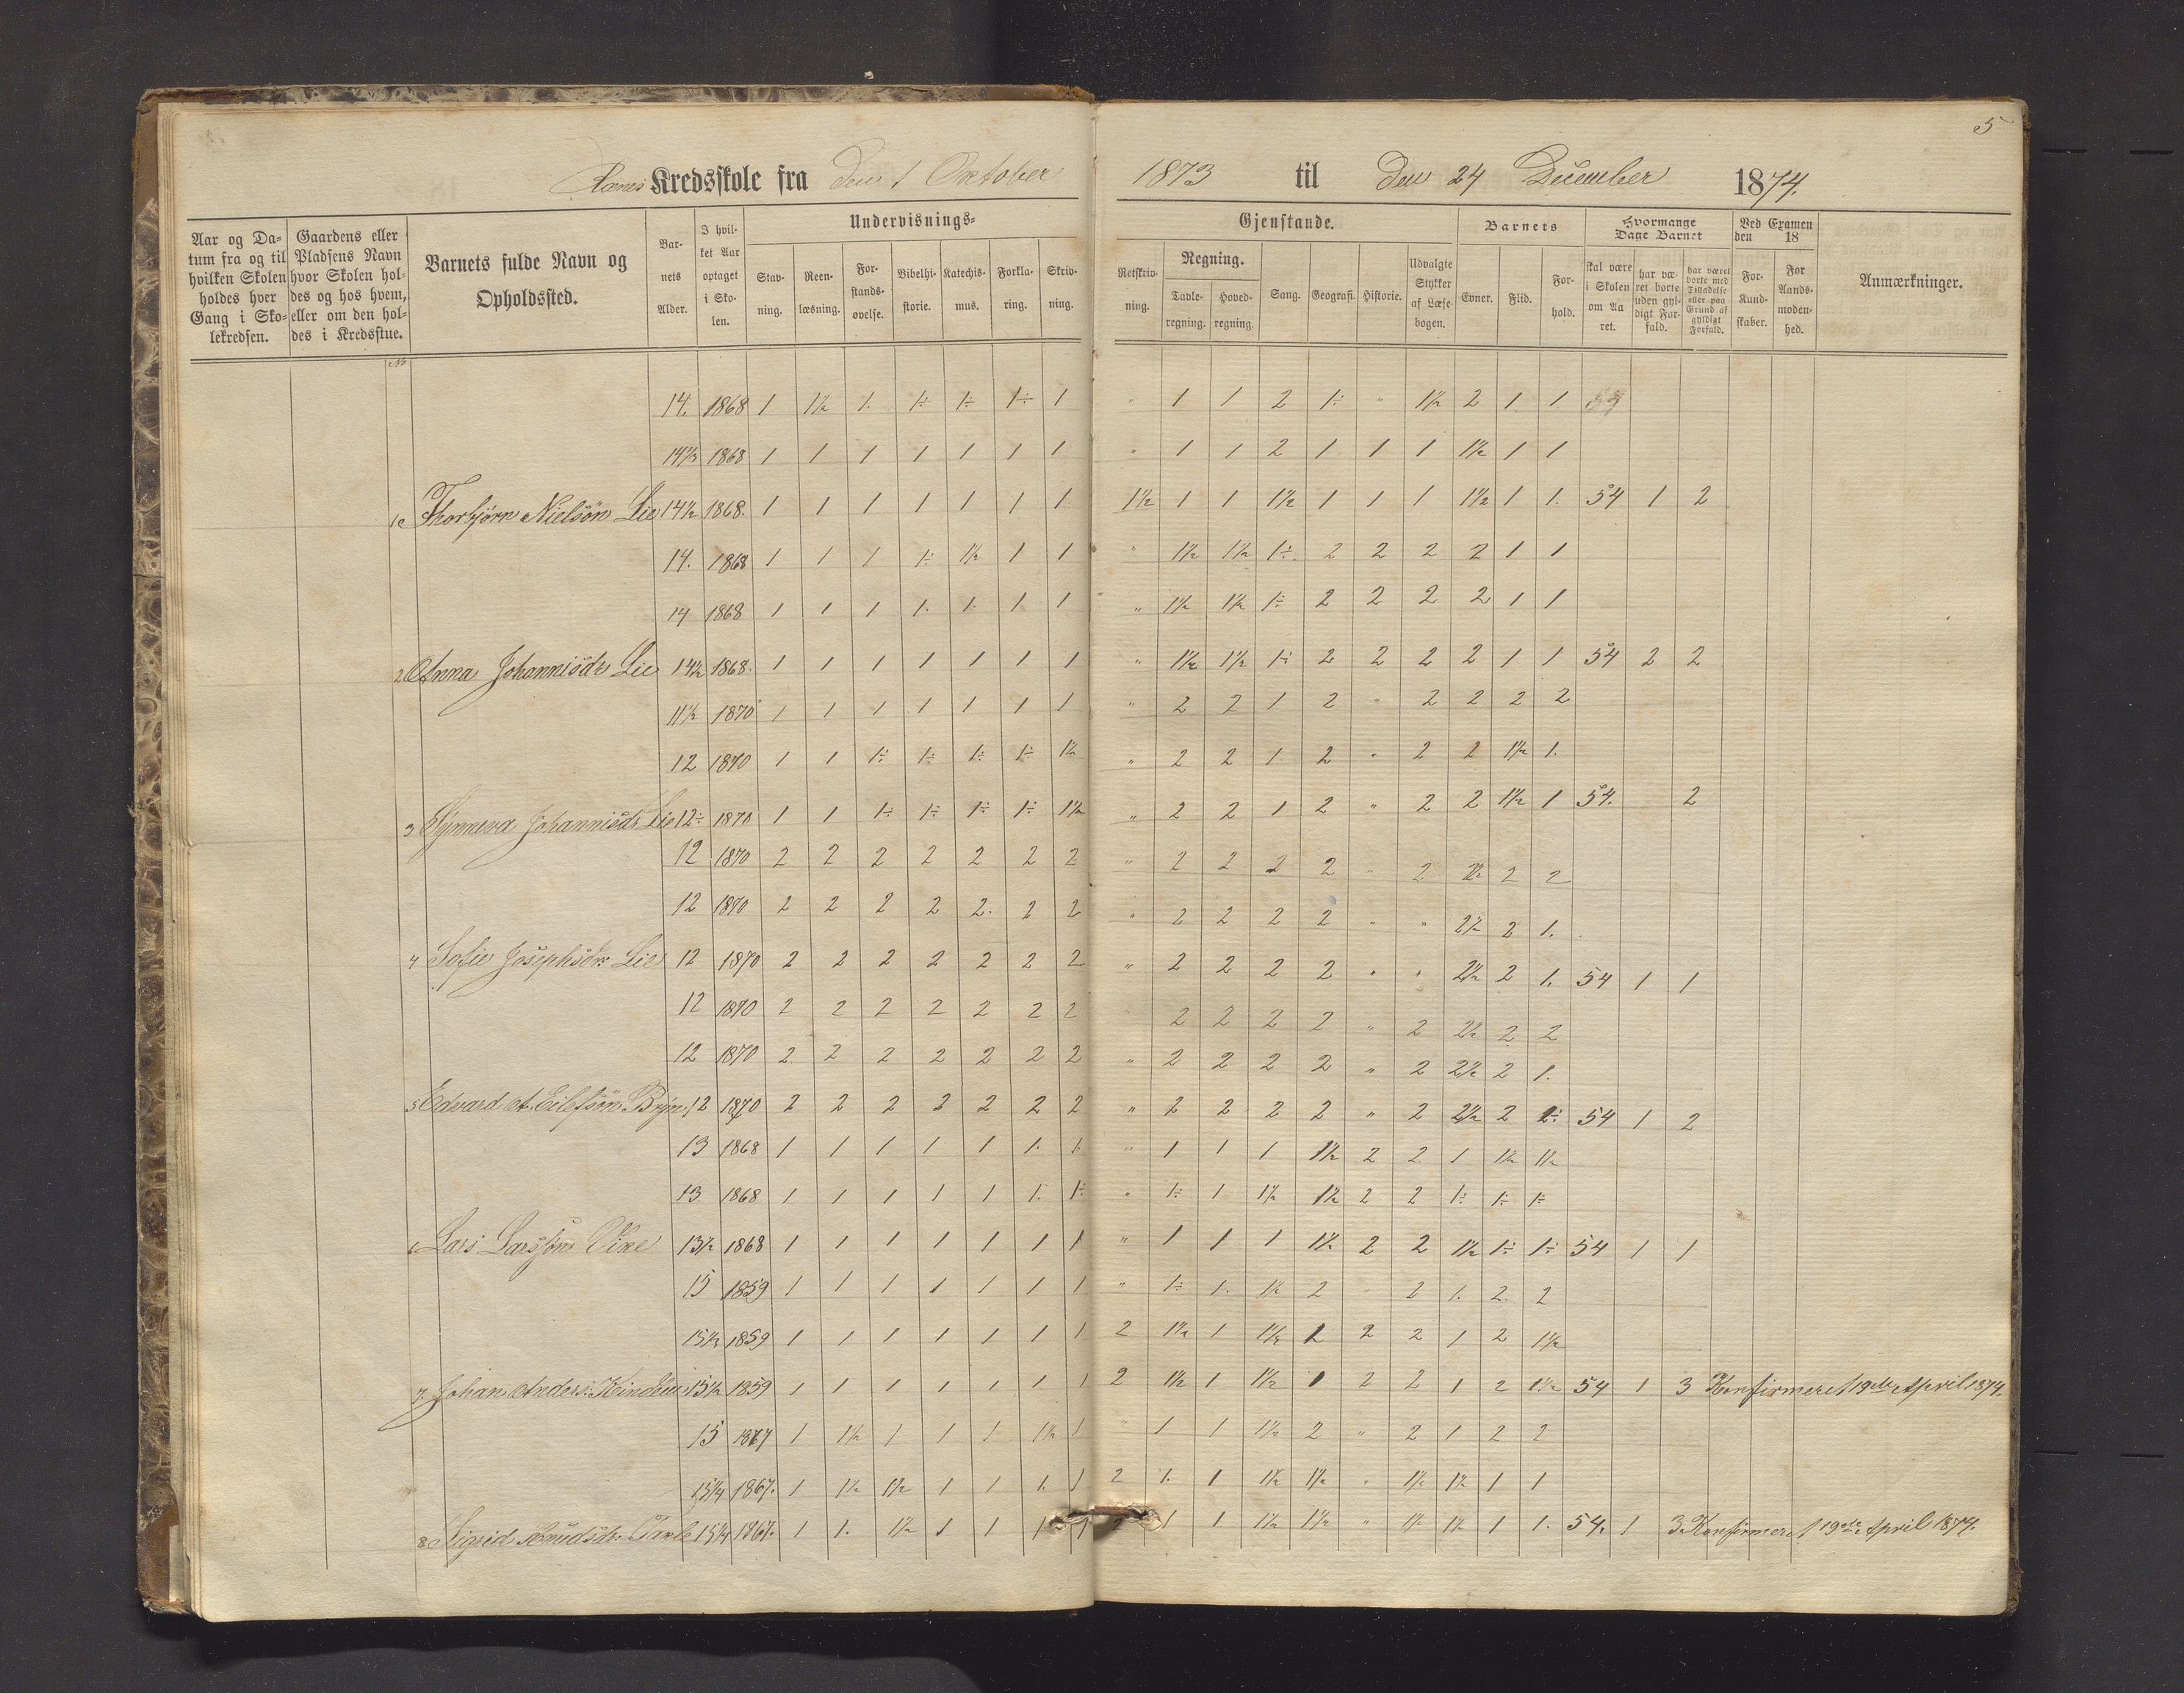 5
Kredsskole fra den 1 Oktober 1873 til den 24 December 1874.
Aar og Da-tum fra og til hvilken Skolen holdes hver Gang i Sko-lekredsen. | Gaardens eller Pladsens Navn hvor Skolen hol-des og hos hvem, eller om den hol-des i Kredsstue. | No | Barnets fulde Navn og Opholdssted. | Bar-nets Alder. | I hvil-ket Aar optaget i Sko-len. | Undervisnings-Gjenstande. | Stav-ning. | Reen-læsning. | For-stands-øvelse. | Bibelhi-storie. | Katechis-mus. | Forkla-ring. | Skriv-ning. | Retskriv-ning. | Regning. | Tavle-regning. | Hoved-regning. | Sang. | Geografi. | Historie. | Udvalgte Stykker af Læse-bogen. | Barnets | Evner. | Flid. | For-hold. | Hvormange Dage Barnet | skal være i Skolen om Aa ret. | har væ-ret borte uden gyl-digt For-fald. | har været borte med Tilladelse eller paa Grund af gyldigt Forfald. | Ved Examen den 18 | For-Kund-skaber. | For Aands-moden-hed. | Anmærkninger.
14. 1868 1 1½ 1. 1÷ 1÷ 1÷ 1 " 1 1 2 1÷ " 1½ 2 1 1
14½ 1868 1 1 1 1 1 1 1 " 1 1 2 1 1 1 1½ 1 1
1 Thorbjørn Nielsön Lie 14½ 1868. 1 1 1 1 1 1 1 1½ 1 1 1½ 1 1 1 1½ 1 1. 54 1 2
14. 1868 1 1 1 1÷ 1½ 1 1 " 1½ 1½ 1÷ 2 2 2 2 1 1
14 1868 1 1 1 1. 1. 1 1 " 1½ 1½ 1÷ 2 2 2 2 1 1
2 Anna Johannisdr Lie 14½ 1868. 1 1 1 1 1 1 1 " 1½ 1½ 1÷ 2 2 2 2 1 1 54 2 2
11½ 1870 1 1 1 1 1 1 1 " 2 2 1 2 " 2 2 2 2
12 1870 1 1 1÷ 1÷ 1÷ 1÷ 1½ " 2 2 1 2 " 2 2 1½ 1.
3 Synneva Johannisdr Lie 12÷ 1870 1 1 1÷ 1÷ 1÷ 1÷ 1½ " 2 2 1 2 " 2 2 1½ 1 54. 2
12 1870 2 2 2 2 2 2 2 " 2 2 2 2 " 2 2½ 2 2
12 1870 2 2 2 2 2. 2 2 " 2 2 2 2 " " 2½ 2 1.
4 Sofie Josephsdr: Lie 12 1870 2 2 2 2 2 2 2 " 2 2 2 2 " " 2½ 2 1. 54 1 1
12 1870 2 2 2 2 2 2 2 " 2 2 2 2 " 2 2½ 2 2
12 1870 2 2 2 2 2 2 2 " 2 2 2 2 " 2 2½ 2 1.
5 Edvard A. Eilefsön Bryn. 12 1870 2 2 2 2 2 2 2 " 2 2 2 2 " 2 2½ 2 54 1 2
13 1868 1 1 1 1 1 1. 1. " 1 1 1 1½ 2 2 1 1½ 1½
13. 1868 1 1 1 1 1 1. 1÷ " 1÷ 1 1½ 1½ 2 2 1÷ 1÷ 1÷
6 Lars Larssön Vike 13½ 1868 1 1 1 1 1 1 1 " 1 1 1 1½ 2 2 1½ 1÷ 1÷ 54 1 1
15 1859 1 1 1 1 1 1 1 " 1÷ 1. 1½ 2 " 2 1. 2. 2
15½ 1859 1 1 1 1 1 1 1 2 1½ 1 1½ 1 2 2 1 2 1½
7. Johan Anders: 15½ 1859 1 1 1 1 1 1 1 2 1½ 1 1½ 1 2 2 1 2 1½ 54 1 3 Konfirmeret 19de April 1874.
15 1867 1 1½ 1 1 1 1½ 1 " 1 1 1½ 2 " 2 1 2 2
15¼ 1867. 1 1½ 1½ 1 1 1. 1 2 1. 1 1½ 1½ " 1½ 1½ 1 1
8 Sigrid Knudsdr. 15¼ 1867. 1 1. 1½ 1 1 1 1 1 1 1½ 1½ " 1½ 1½ 1 1. 54. 1 3 Konfirmeret 19de April 1874.